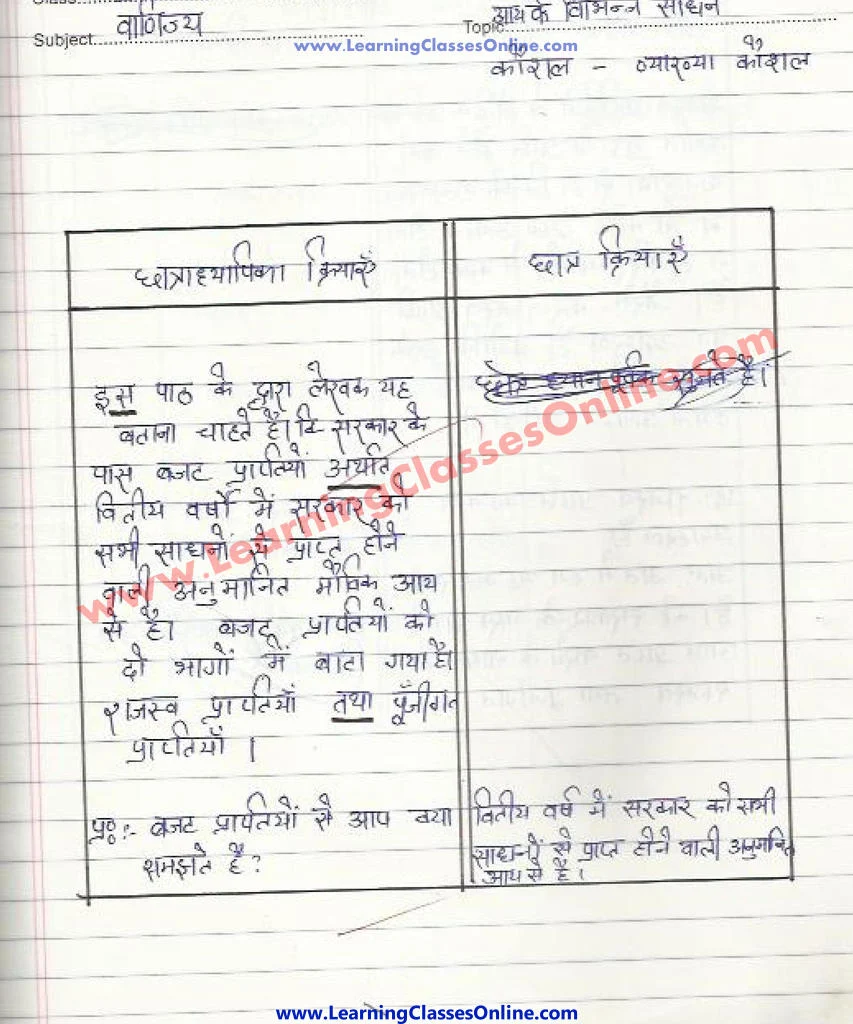 Subject वाणिज्य
Topic आय के विभिन्न साधन
www.LearningClassesOnline.com
कौशल - व्याख्या कौशल
छात्राध्यापिका क्रियाएँ
छात्र क्रियाएँ
इस पाठ के द्वारा लेखक यह
बताना चाहते है। कि सरकार के
पास बजट प्राप्तियों अर्थात
वित्तीय वर्षों में सरकार को
सभी साधनों से प्राप्त होने
वाली अनुमानित मौद्रिक आय
से है। बजट प्राप्तियों को
दो भागों में बाटा गया है।
राजस्व प्राप्तियाँ तथा पूँजीगत
प्राप्तियाँ ।
छात्र ध्यानपूर्वक सुनते है।
www.LearningClassesOnline.com
प्र०:- बजट प्राप्तियों से आप क्या
समझते है?
वित्तीय वर्ष में सरकार को सभी
साधनों से प्राप्त होने वाली अनुमानित
आय से है।
www.LearningClassesOnline.com